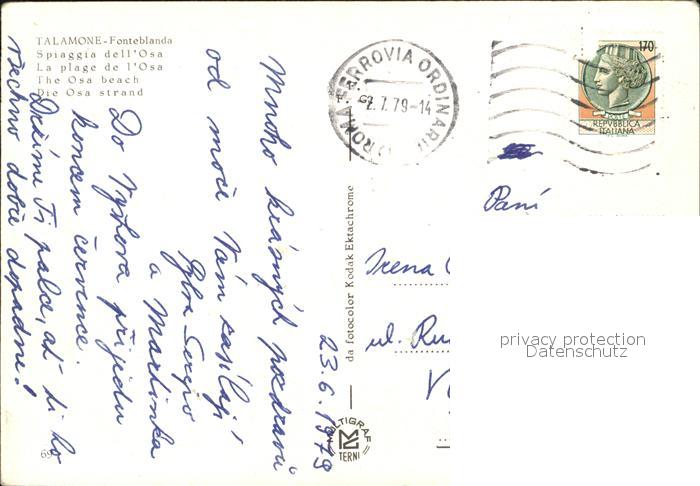 TALAMONE-Fonteblanda
Spiaggia dell'Osa
La plage de l'Osa
The Osa beach
Die Osa strand
Mnoho krásných pozdravů
od moře Vám zasílají
Sergio
a Martinka
Do Vyškova přijedu
koncem července.
Držíme Ti palce, ať ti to
všechno dobře dopadne!
23.6.1979
da fotocolor Kodak Ektachrome
ROMA FERROVIA ORDINARIE
2.7.79-14
170
REPVBBLICA
ITALIANA
Paní
Irena
ul.
privacy protection
Datenschutz
TERNI